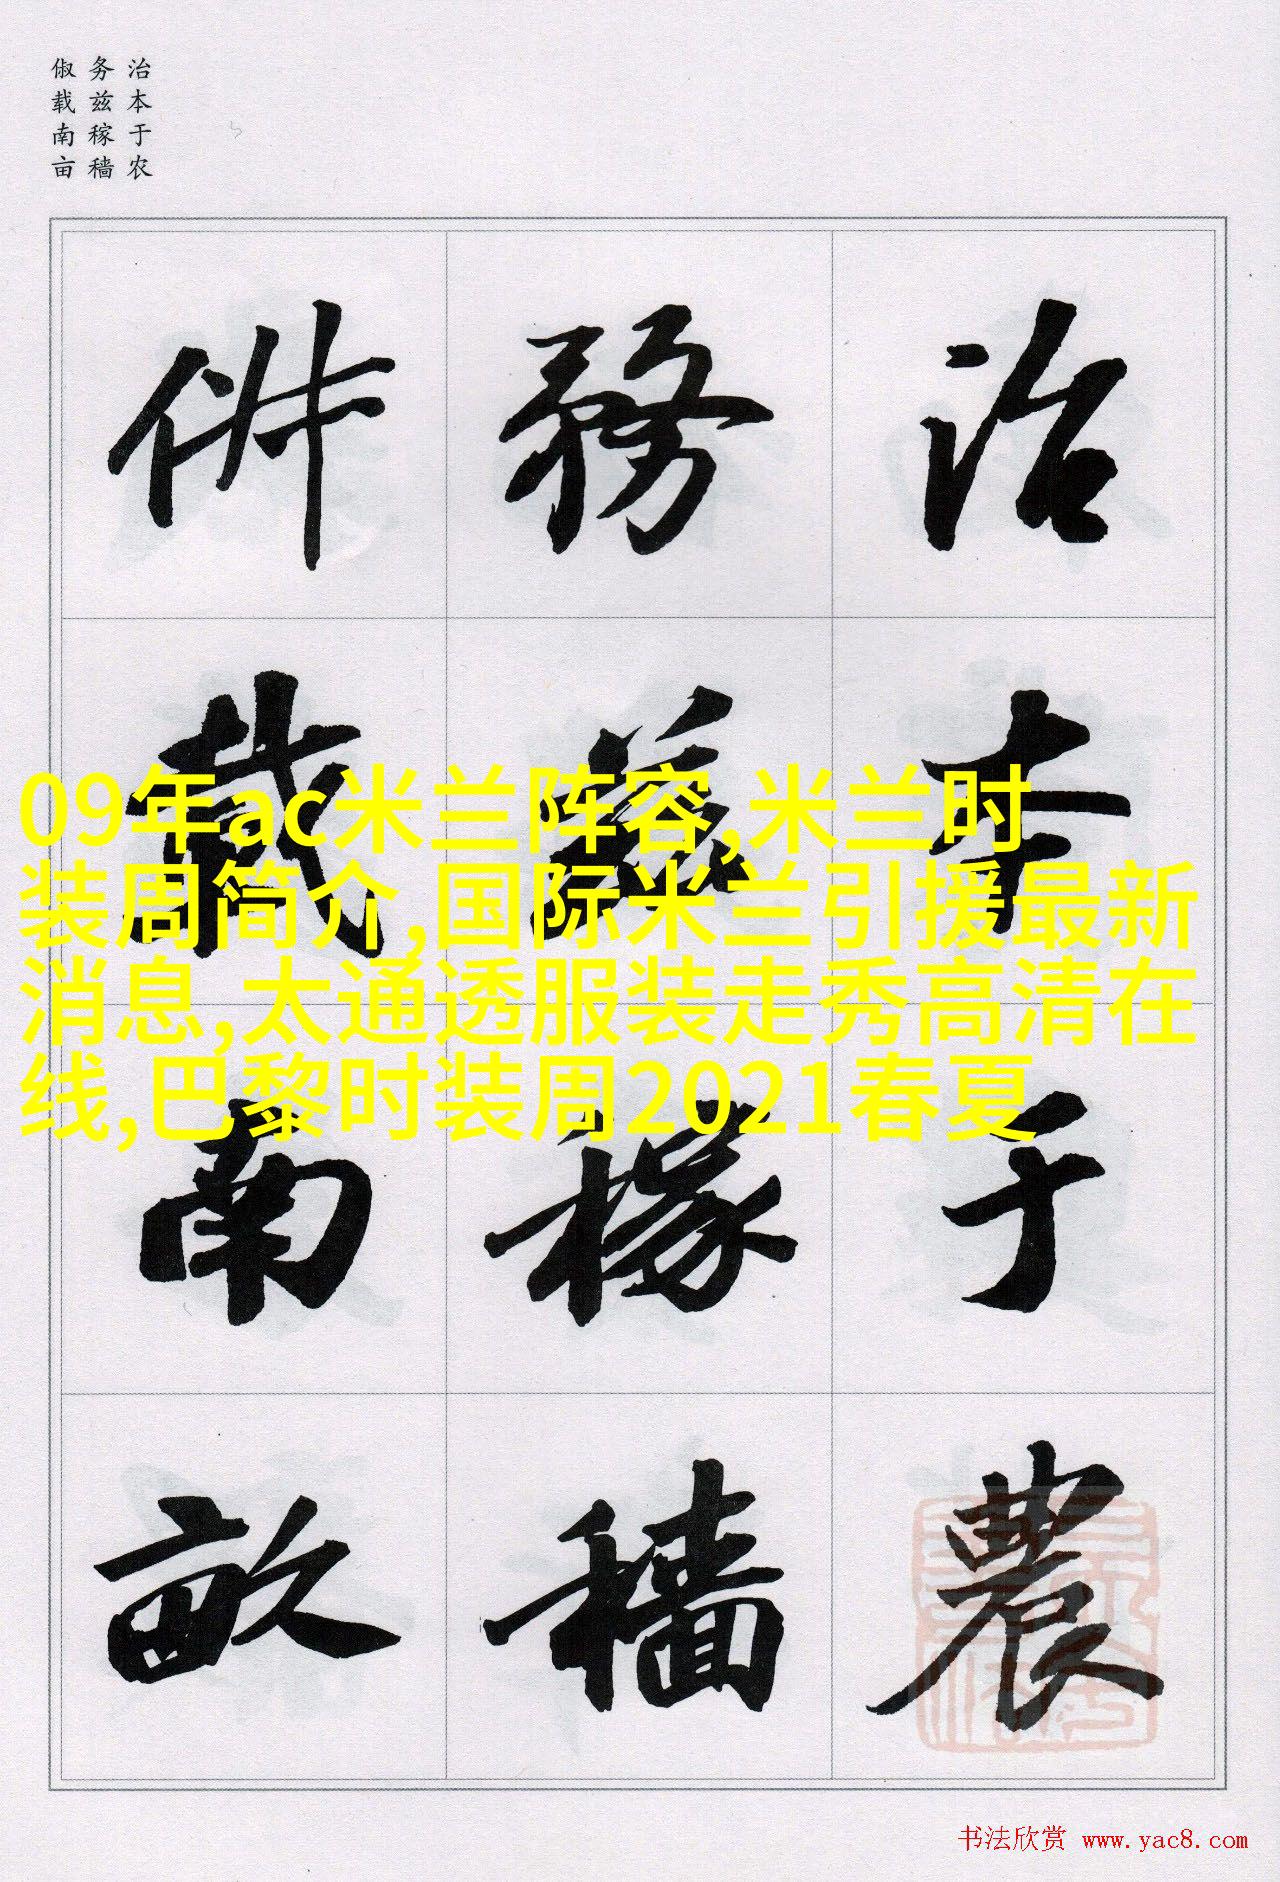 治本于农
务兹稼穑
俶载南亩
治本于農
務茲稼穡
俶载南畝
09年ac米兰阵容,米兰时
装周简介,国际米兰引援最新
消息,太通透服装走秀高清在
线,巴黎时装周2021春夏
书法欣赏 www.yac8.com